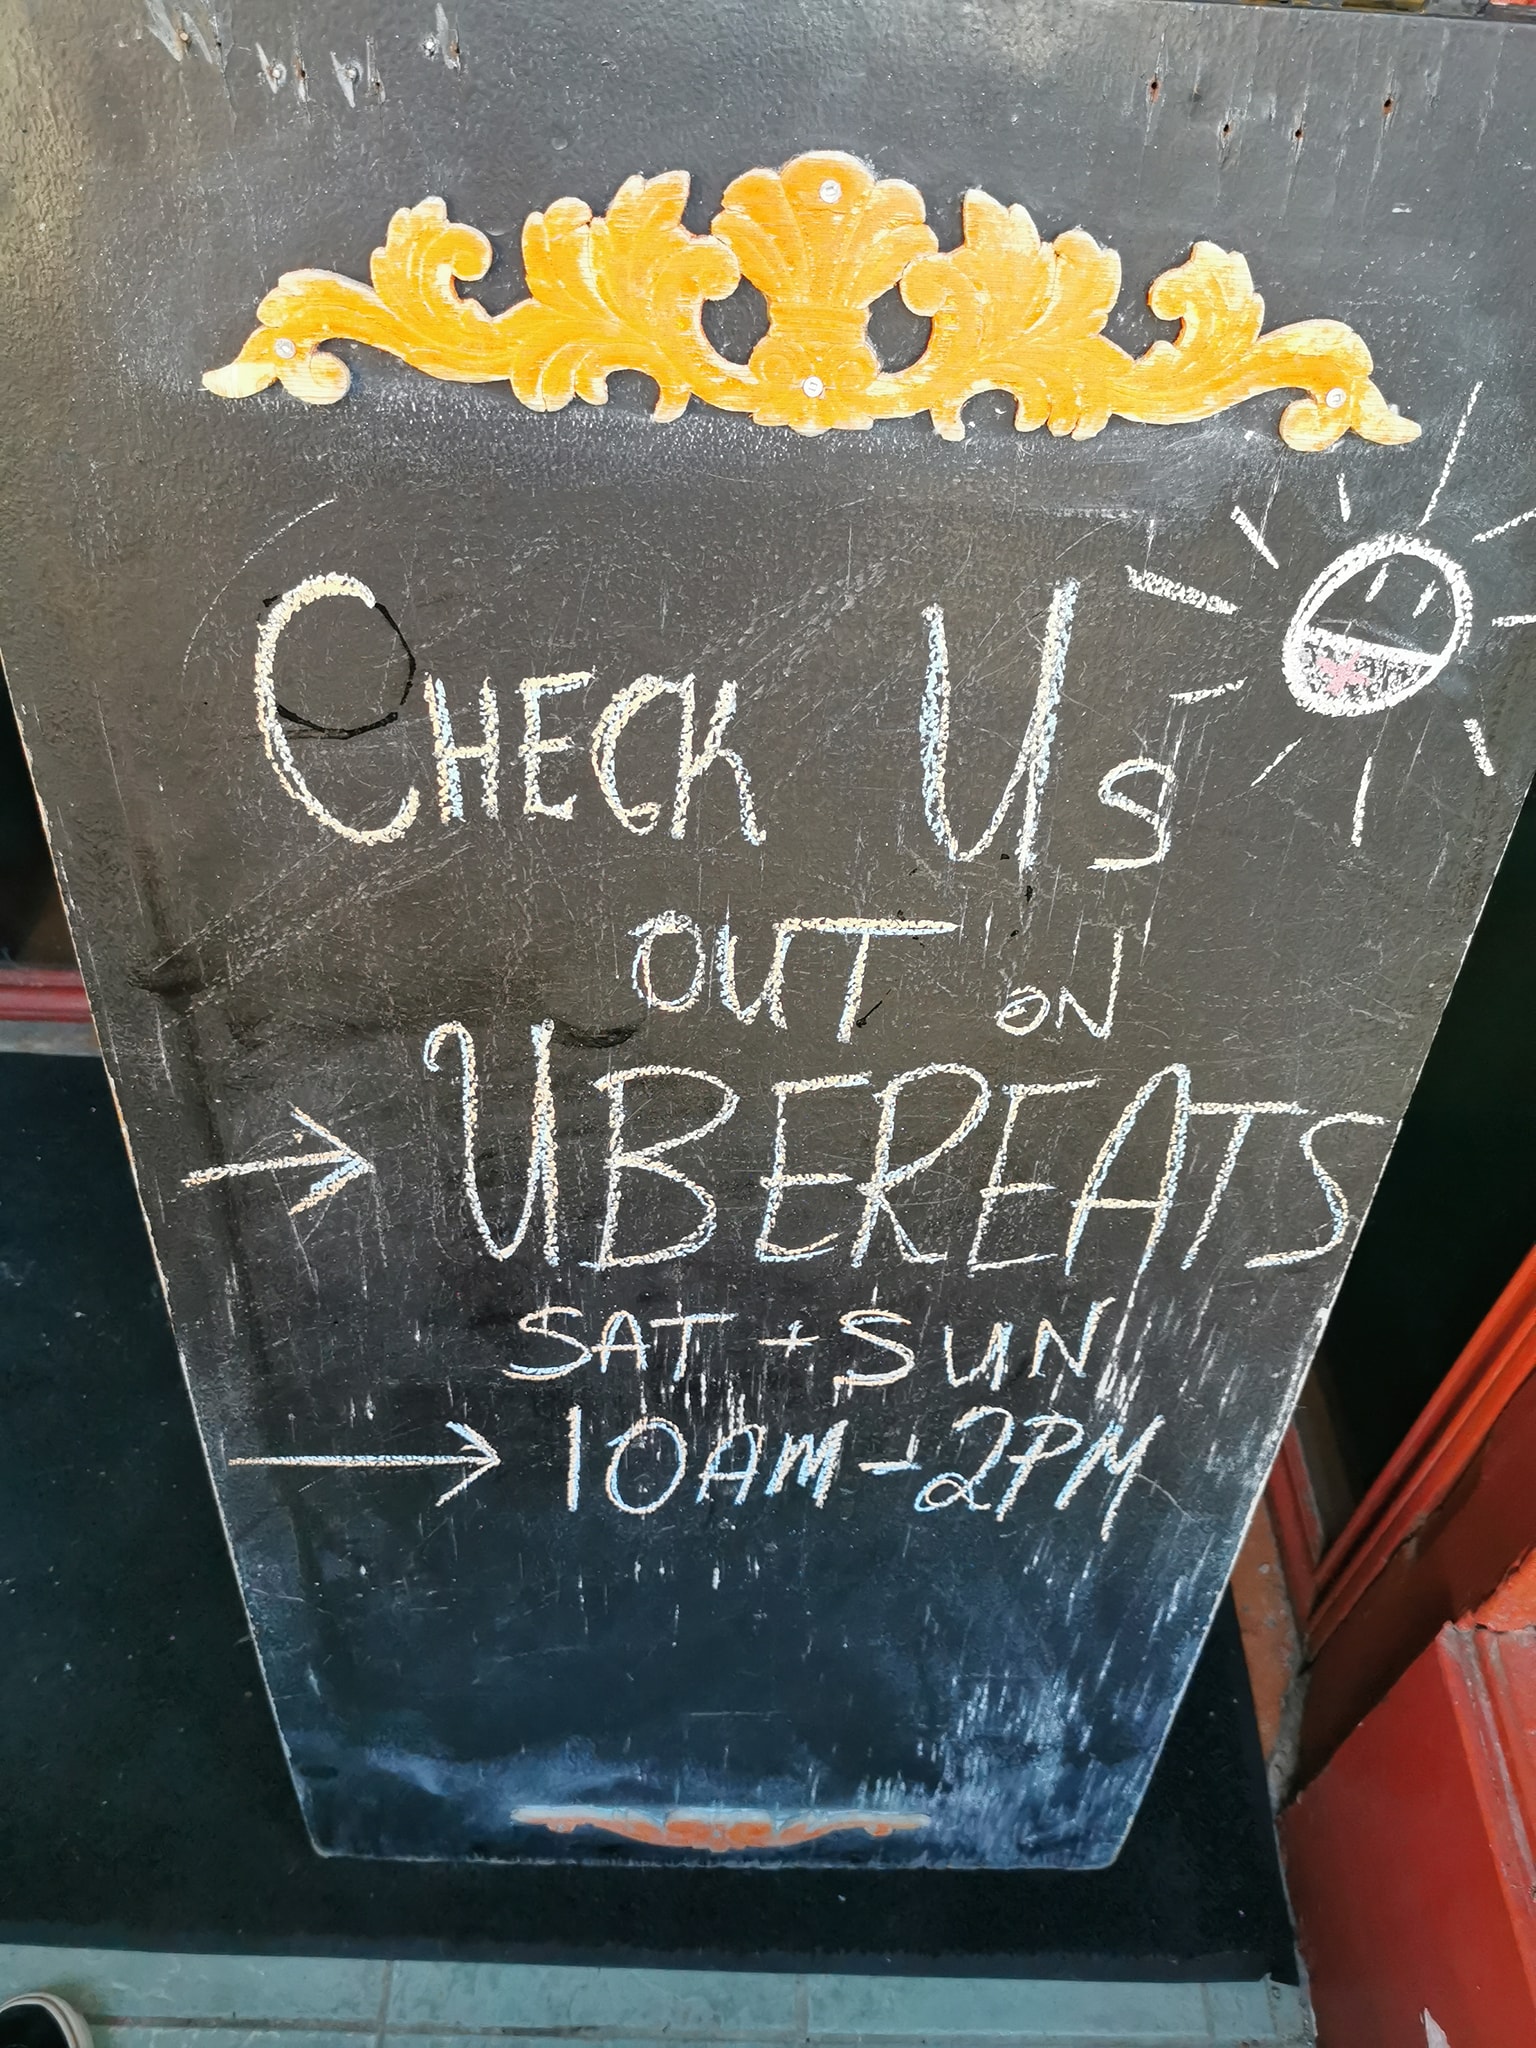 CHECK Us
OUT ON
UBEREATS
SAT + SUN
10AM - 2PM